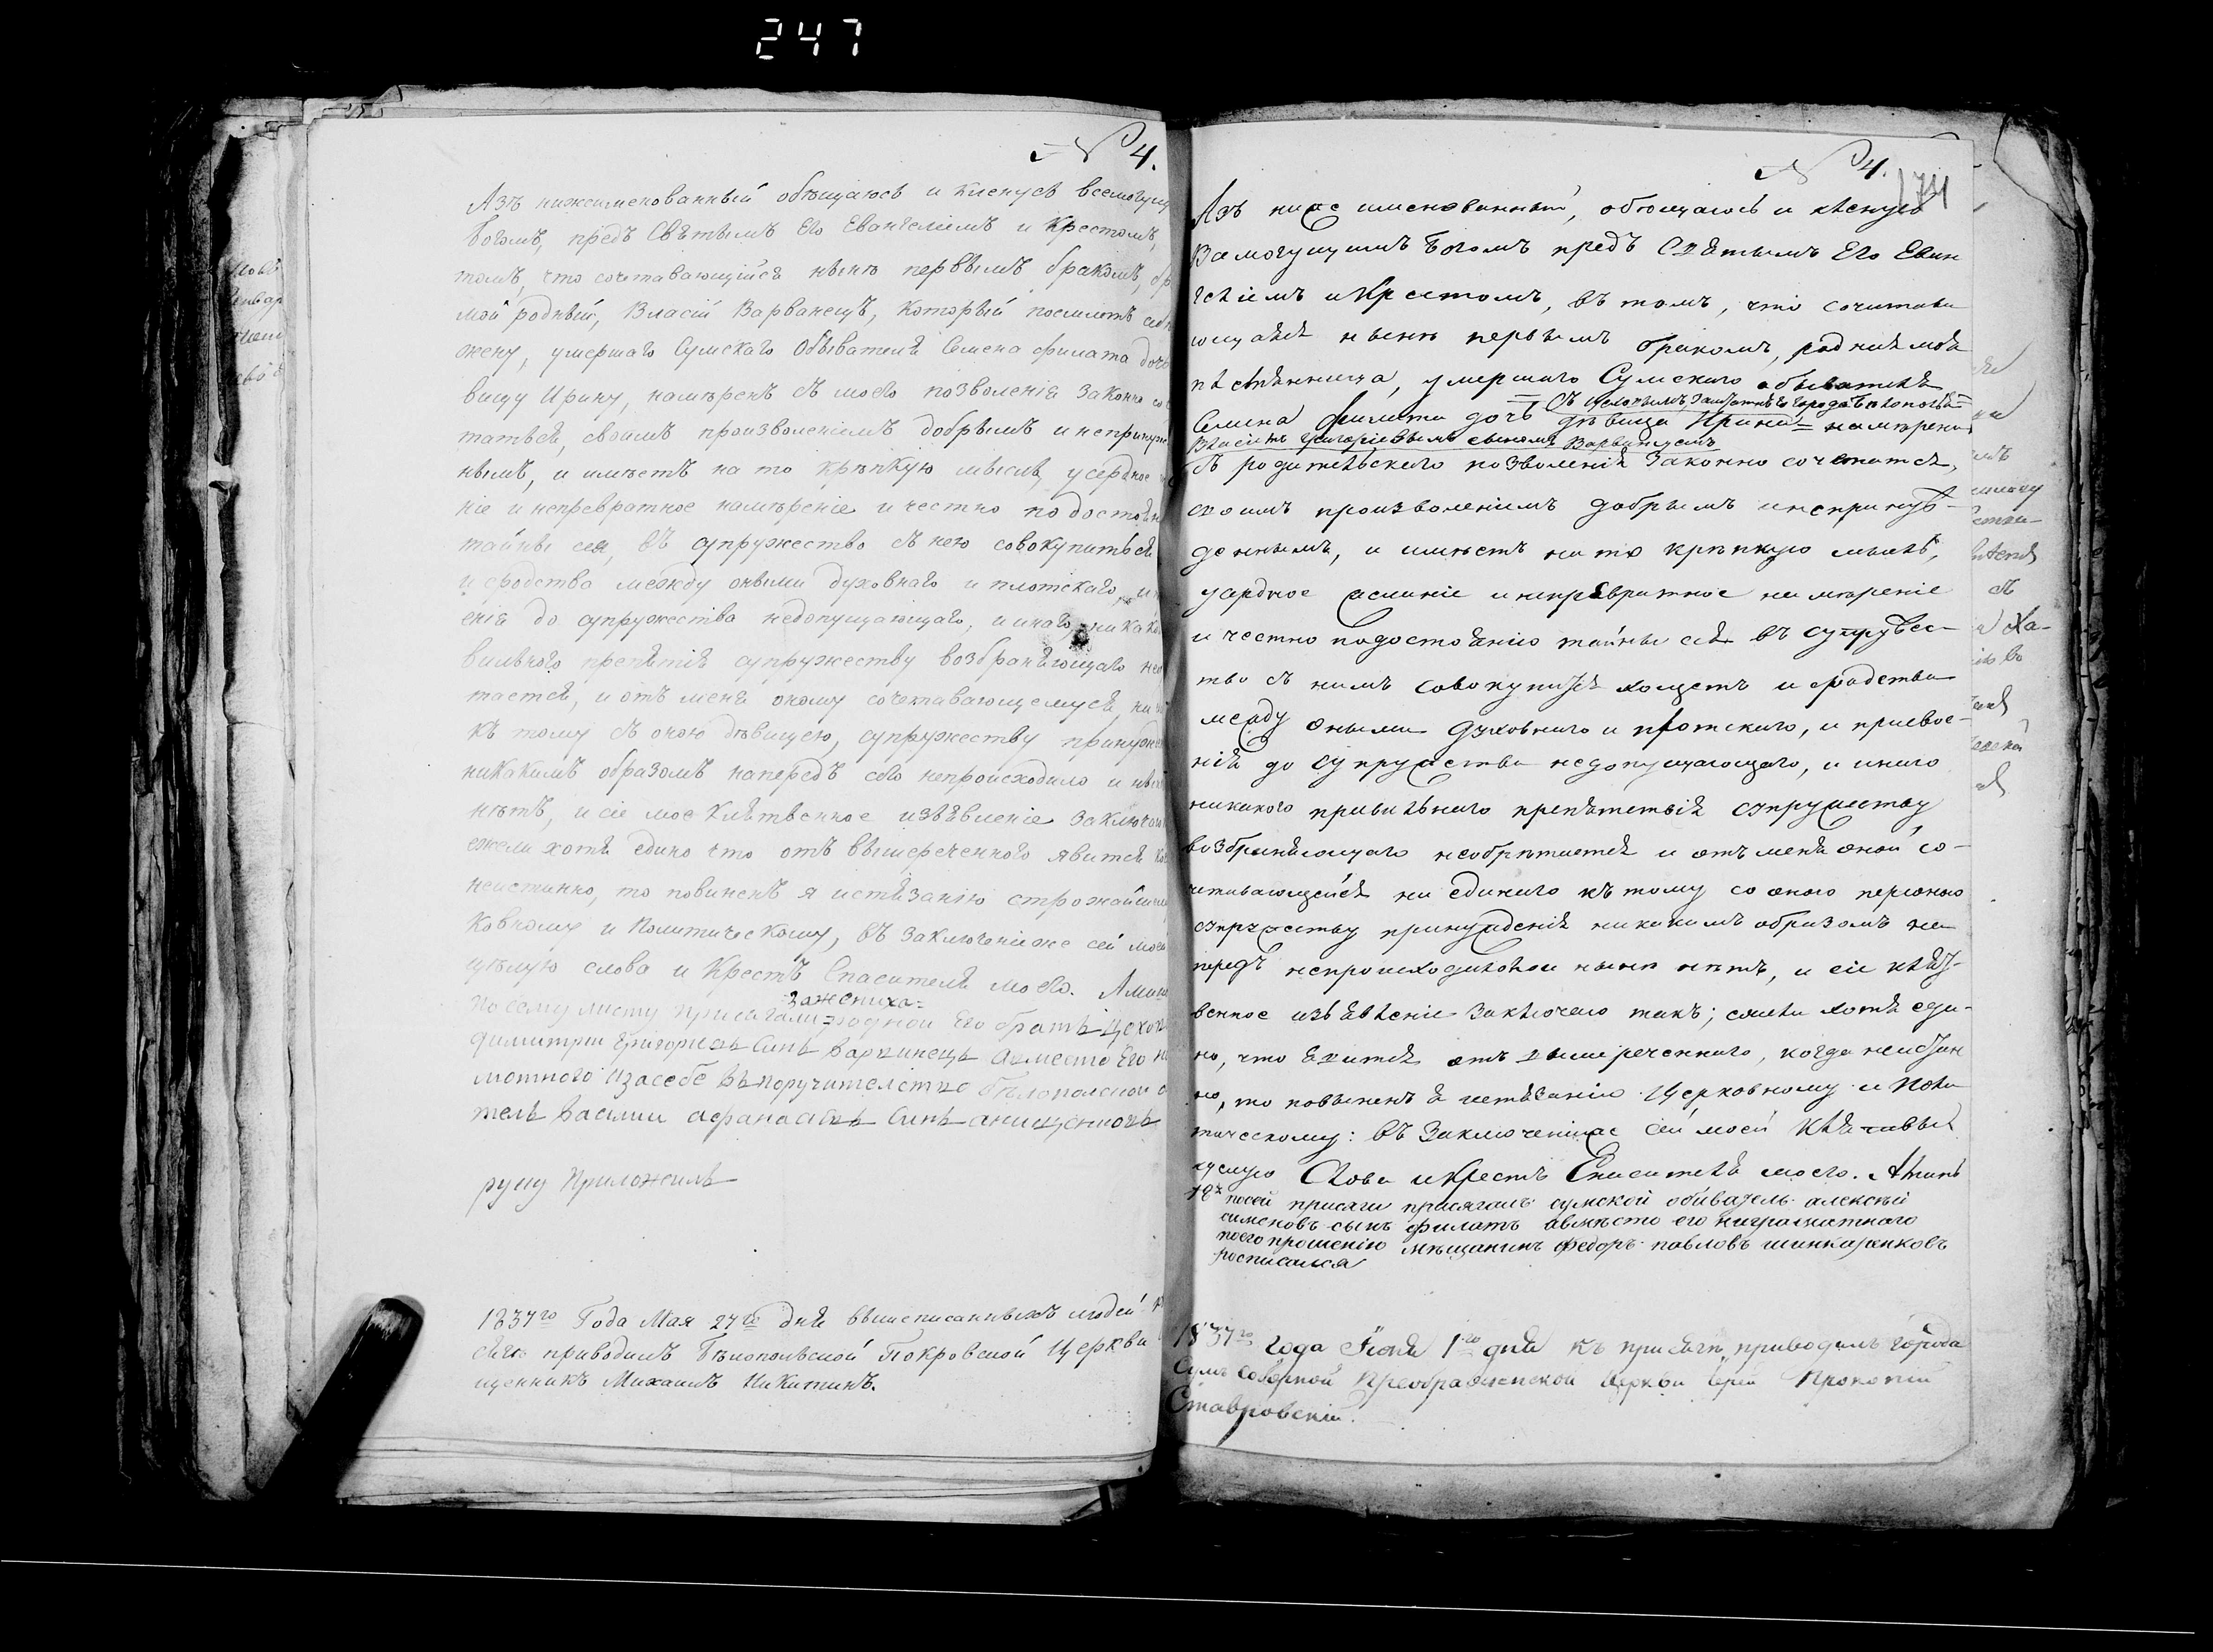 247
№ 4.
Азъ нижеименованный обѣщаюсь и кленусь всемогущ
Богомъ, предъ Святымъ Его Евангеліемъ и Крестомъ,
томъ, что сочетавающійся нынѣ первымъ бракомъ, бр
мой родный, Власій Варванецъ, который поемлетъ себѣ
жену, умершаго Сумскаго Обывателя Семена Филата дочь
вицу Ирину, намѣренъ съ моего позволенія законно со
таться, своимъ произволеніемъ добрымъ и непринужде
нымъ, и имѣетъ на то крѣпкую мысль, усердное
ніе и непревратное намѣреніе и честно по достоян
тайны сея, въ супружество съ нею совокупиться
и сродства между оными духовнаго и плотскаго, и
енія до супружества недопущающаго, и инаго никако
вильнаго препятія супружеству возбраняющаго нео
тается, и отъ меня оному сочетавающемуся, ни
къ тому съ оною дѣвицею, супружеству принужде
никакимъ образомъ напередъ сего непроисходило и нын
нѣтъ, и сіе мое клятвенное изъявленіе заключаю
ежели хотя едино что отъ вышереченного явится ко
неистинно, то повиненъ я истязанію строжайшему
ковному и Политическому, въ заключеніи же сей моей
цѣлую слова и Крестъ Спасителя моего. Аминь
за жениха=
По сему листу присягали= родной Его братъ Цехов
димитрии Григориевъ Синъ Варванецъ Авместо Его не
мотного изасебе въ поручителство бѣлополской о
тель Василии афанасиевъ Синъ анищенковъ
руку Приложилъ
1837го Года Мая 27го дня вышеписанныхъ людей
сягѣ приводилъ Бѣлопольской Покровской Церкви
щенникъ Михаилъ Никитинъ.
№ 4.
174
Азъ ниже именованный, обѣщаюсь и кленусь
Всемогущимъ Богомъ предъ Святымъ Его Еван
геліемъ и Крестомъ, въ томъ, что сочетава
ющаяся нынѣ первымъ бракомъ, родная моя
племянница, умершаго Сумскаго обывателя
Семена Филата дочь дѣвица Ирина= намѣрена
Власіемъ Григоріевымъ сыномъ Варванцемъ
съ родительскаго позволенія законно сочетатся,
своимъ произволеніемъ добрымъ и непринуж-
деннымъ, и имѣетъ на то крѣпкую мысль,
усердное желаніе и непревратное намѣреніе
и честно подостоянію тайны сея въ супружес-
тво съ нимъ совокупится хощетъ и сродства
между оными духовнаго и плотскаго, и присвое-
нія до супружества недопущающаго, и инаго
никакого правильнаго препятствія супружеству
возбраняющаго необрѣтается и отъ меня оной со-
четавающейся ни единаго къ тому со оною персоною
супружеству принужденія никакимъ образомъ на
передъ непроисходило и нынѣ нѣтъ, и сіе клят-
венное изъявленіе заключаю такъ; ежели хотя еди-
но, что явится отъ вышереченнаго, когда неистин
но, то повыненъ я истязанію Церковному и Поли
тическому: въ Заключеніиже сей моей клятавы
цѣлую Слова и Крестъ Спасителя моего. Аминь
посей присяги присягалъ сумской обиватель алексѣй
сименовъ сынъ филатъ авмѣсто его награматнаго
поего прошенію мѣщанинъ федоръ павловъ шинкаренковъ
росписался
1837го года Іюня 1го дня къ присягѣ приводилъ города
Сумъ Соборной Преображенской Церкви Іерей Прокопій
Ставровскій.